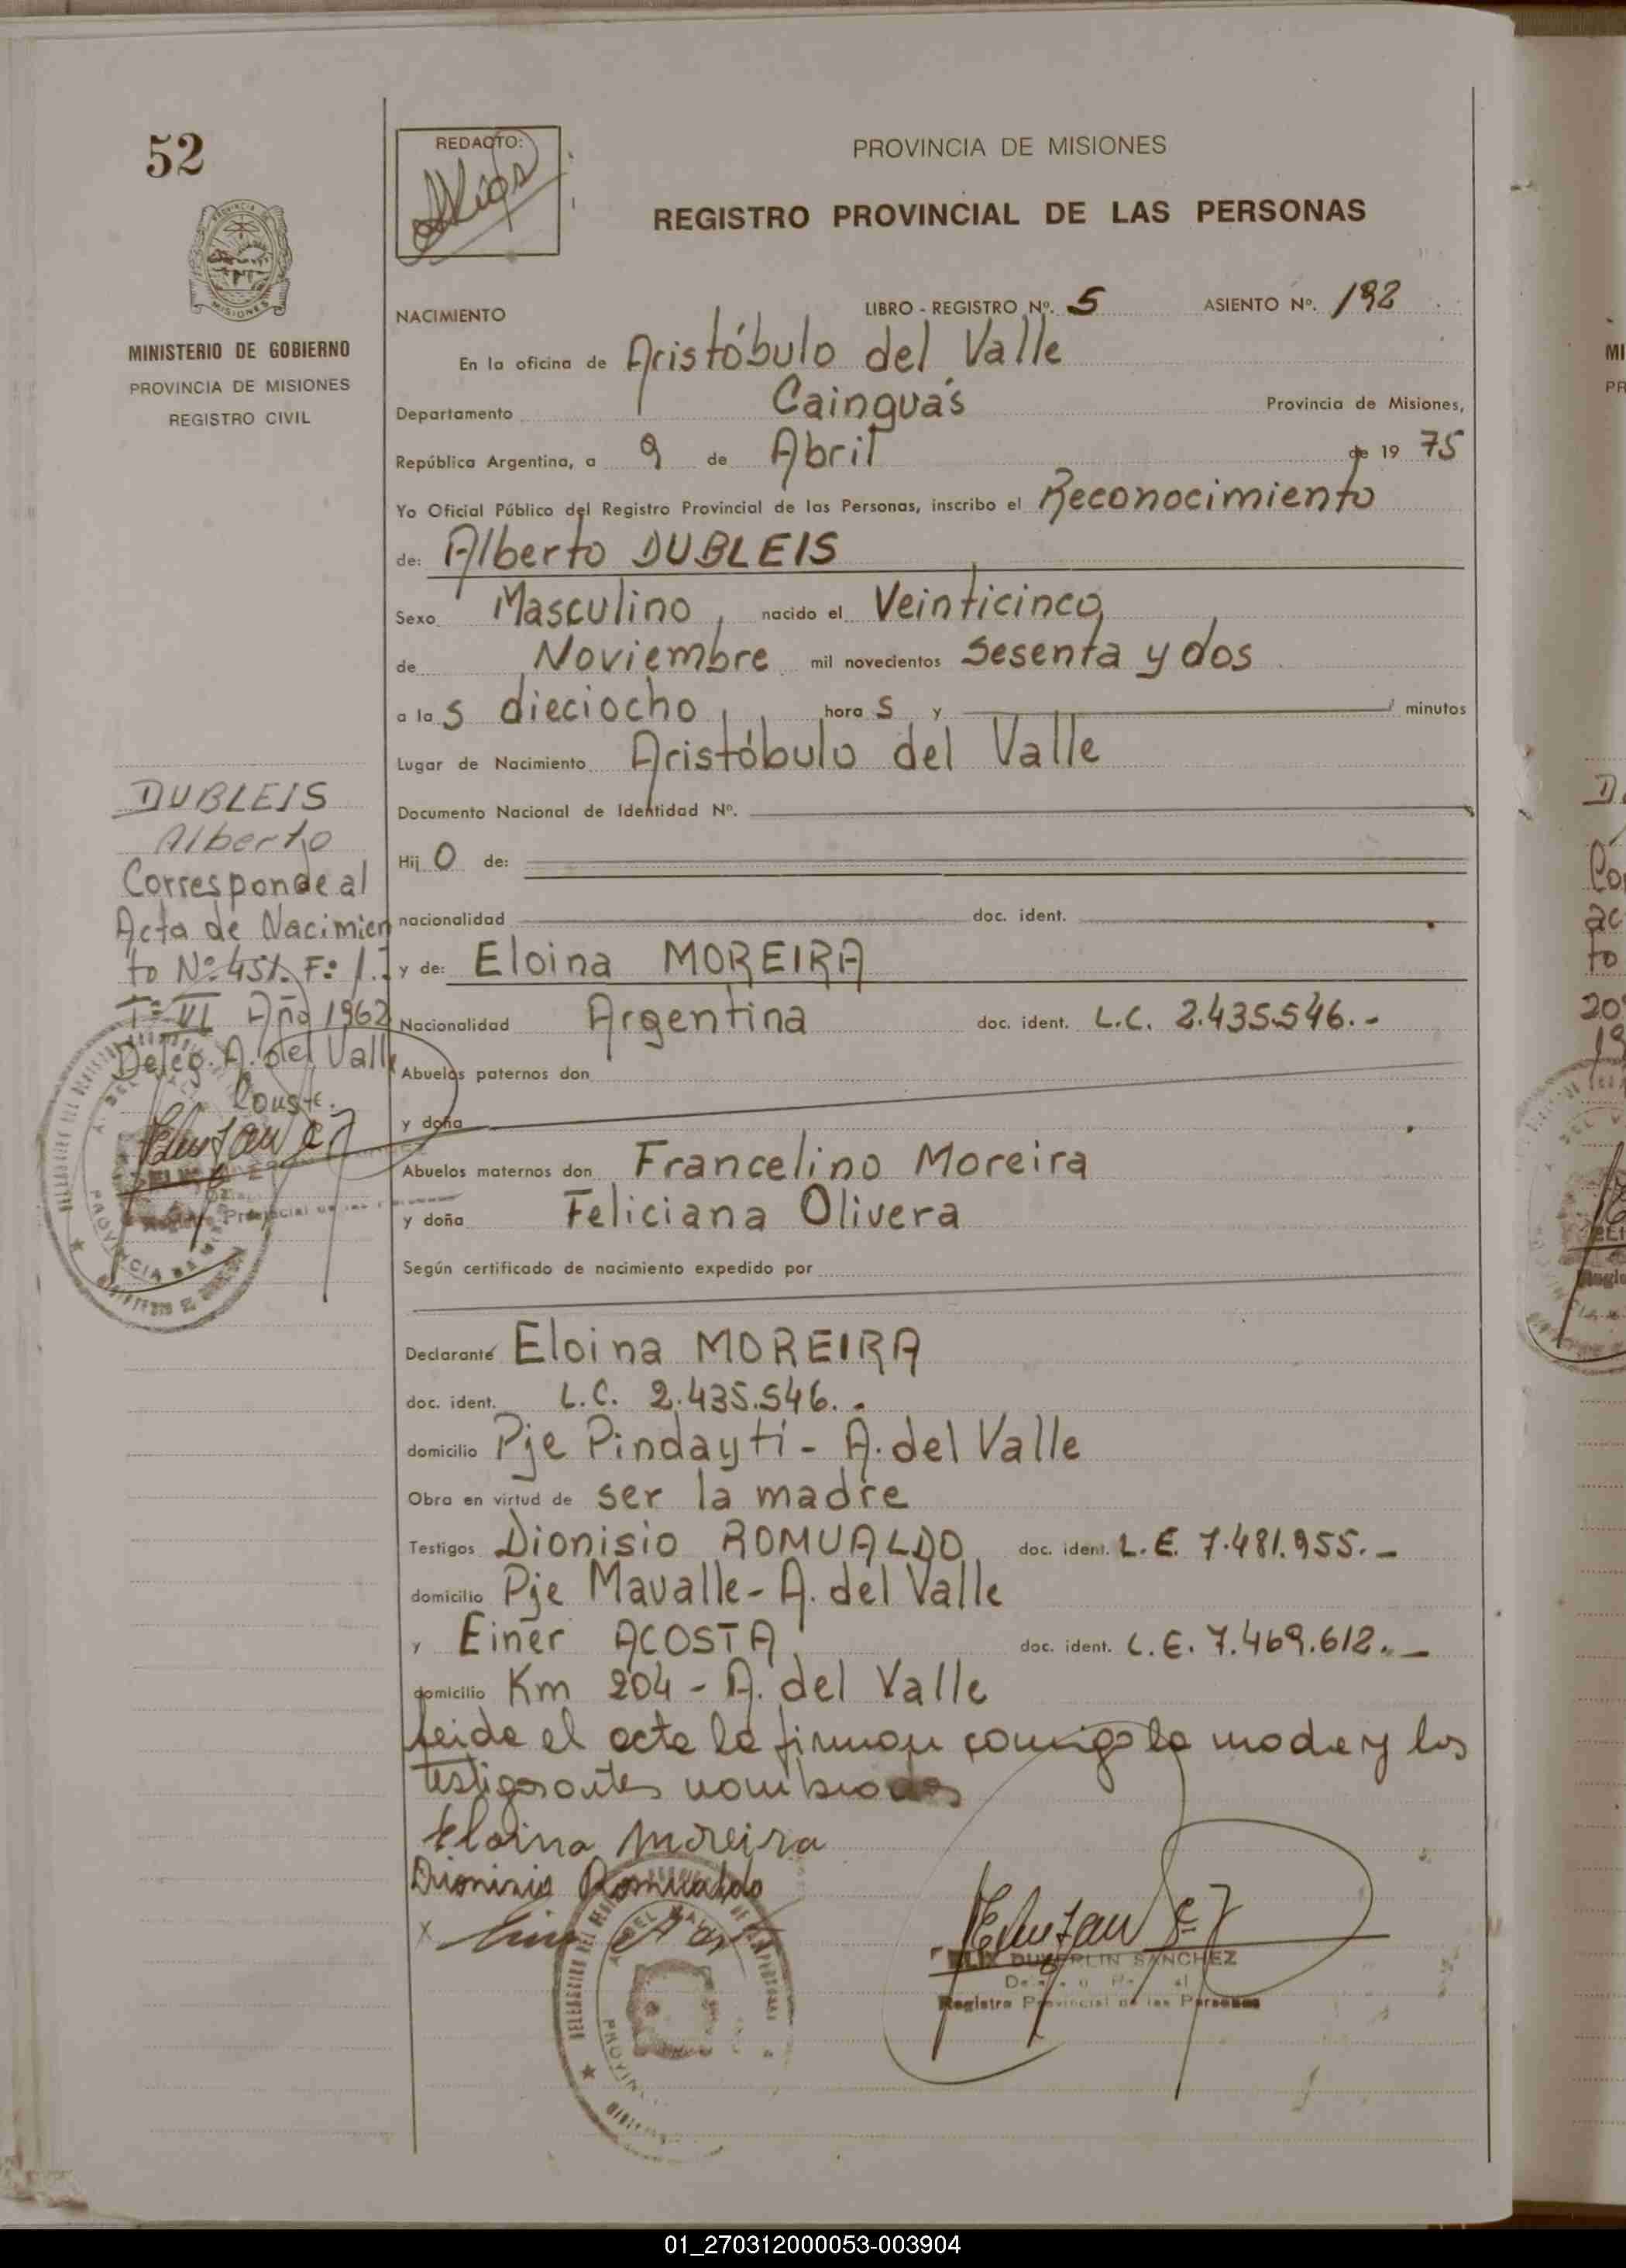 52
MINISTERIO DE GOBIERNO
PROVINCIA DE MISIONES
REGISTRO CIVIL
REDACTO:
PROVINCIA DE MISIONES
REGISTRO PROVINCIAL DE LAS PERSONAS
NACIMIENTO LIBRO - REGISTRO Nº. 5 ASIENTO Nº. 192
En la oficina de Aristóbulo del Valle
Departamento Cainguás Provincia de Misiones,
República Argentina, a 9 de Abril de 19 75
Yo Oficial Público del Registro Provincial de las Personas, inscribo el Reconocimiento
de: Alberto DUBLEIS
Sexo Masculino, nacido el Veinticinco
de Noviembre mil novecientos Sesenta y dos
a la s dieciocho, hora s y minutos
Lugar de Nacimiento Aristóbulo del Valle
Documento Nacional de Identidad Nº.
Hij o de:
nacionalidad doc. ident.
y de: Eloina MOREIRA
Nacionalidad Argentina doc. ident. L.C. 2.435.546.-
Abuelos paternos don
y doña
Abuelos maternos don Francelino Moreira
y doña Feliciana Olivera
Según certificado de nacimiento expedido por
Declarante Eloina MOREIRA
doc. ident. L.C. 2.435.546.-
domicilio Pje Pindaytí - A. del Valle
Obra en virtud de ser la madre
Testigos Dionisio ROMUALDO doc. ident. L.E. 7.481.955.-
domicilio Pje Mavalle - A. del Valle
y Einer ACOSTA doc. ident. L.E. 7.469.612.-
domicilio Km 204 - A. del Valle
Leida el acta la firman conmigo la madre y los
testigos antes nombrados
Eloina Moreira
Dionisio Romualdo
DUVERLIN SANCHEZ
Registro Provincial de las Personas
DUBLEIS
Alberto
Corresponde al
Acta de Nacimien
to Nº 451. F: 1.
Tº VI Año 1962
Deleg. A. del Valle
Conste.
01_270312000053-003904